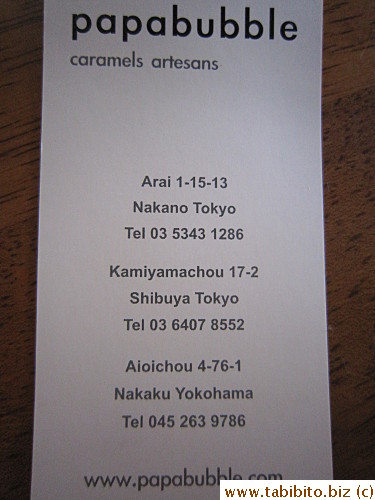 papabubble
caramels artesans
Arai 1-15-13
Nakano Tokyo
Tel 03 5343 1286
Kamiyamachou 17-2
Shibuya Tokyo
Tel 03 6407 8552
Aioichou 4-76-1
Nakaku Yokohama
Tel 045 263 9786
www.papabubble.com
www.tabibito.biz (c)